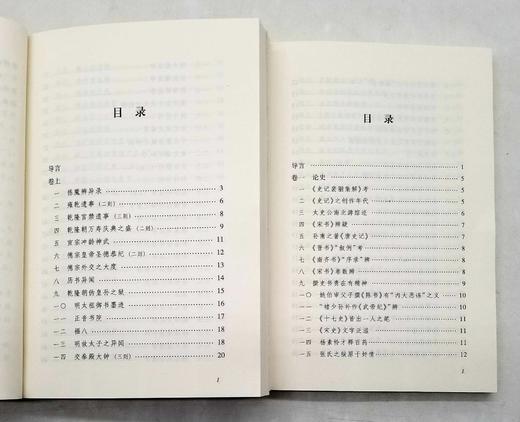 目录
导言
卷上
一 拣魔辨异录 3
二 雍乾遗事(二则) 6
三 乾隆宫禁遗事(三则) 8
四 乾隆朝万寿庆典之盛(二则) 9
五 宣宗冲龄神武 11
六 德宗皇帝圣德恭纪 12
七 德宗外交之大度 12
八 历书异闻 13
九 乾隆朝伪皇孙之狱 14
一〇 明太祖御书墨迹 15
一一 正音书院 16
一二 福八 17
一三 明故太子之异闻 18
一四 交泰殿大钟(三则) 20
1
目录
导言 1
卷一 论史 1
一 《史记裴骃集解》考 1
二 《史记》之创作年代 2
三 太史公南北游综述 3
四 《宋书》辨疑 7
五 孙甫之著《唐史记》 7
六 《晋书》“叙例”考 7
七 《南齐书》“序录”辨 7
八 《宋书》卷数辨 8
九 撰史书贵在有精神 9
一〇 姚伯审父子撰《陈书》有“内大恶讳”之义 10
一一 “褚少孙补作《武帝纪》”辨 10
一二 《十七史》皆出一人之笔 11
一三 《宋史》文字正讹 11
一四 杨素怜才释百药 12
一五 张氏之狱原于奸情 12
1